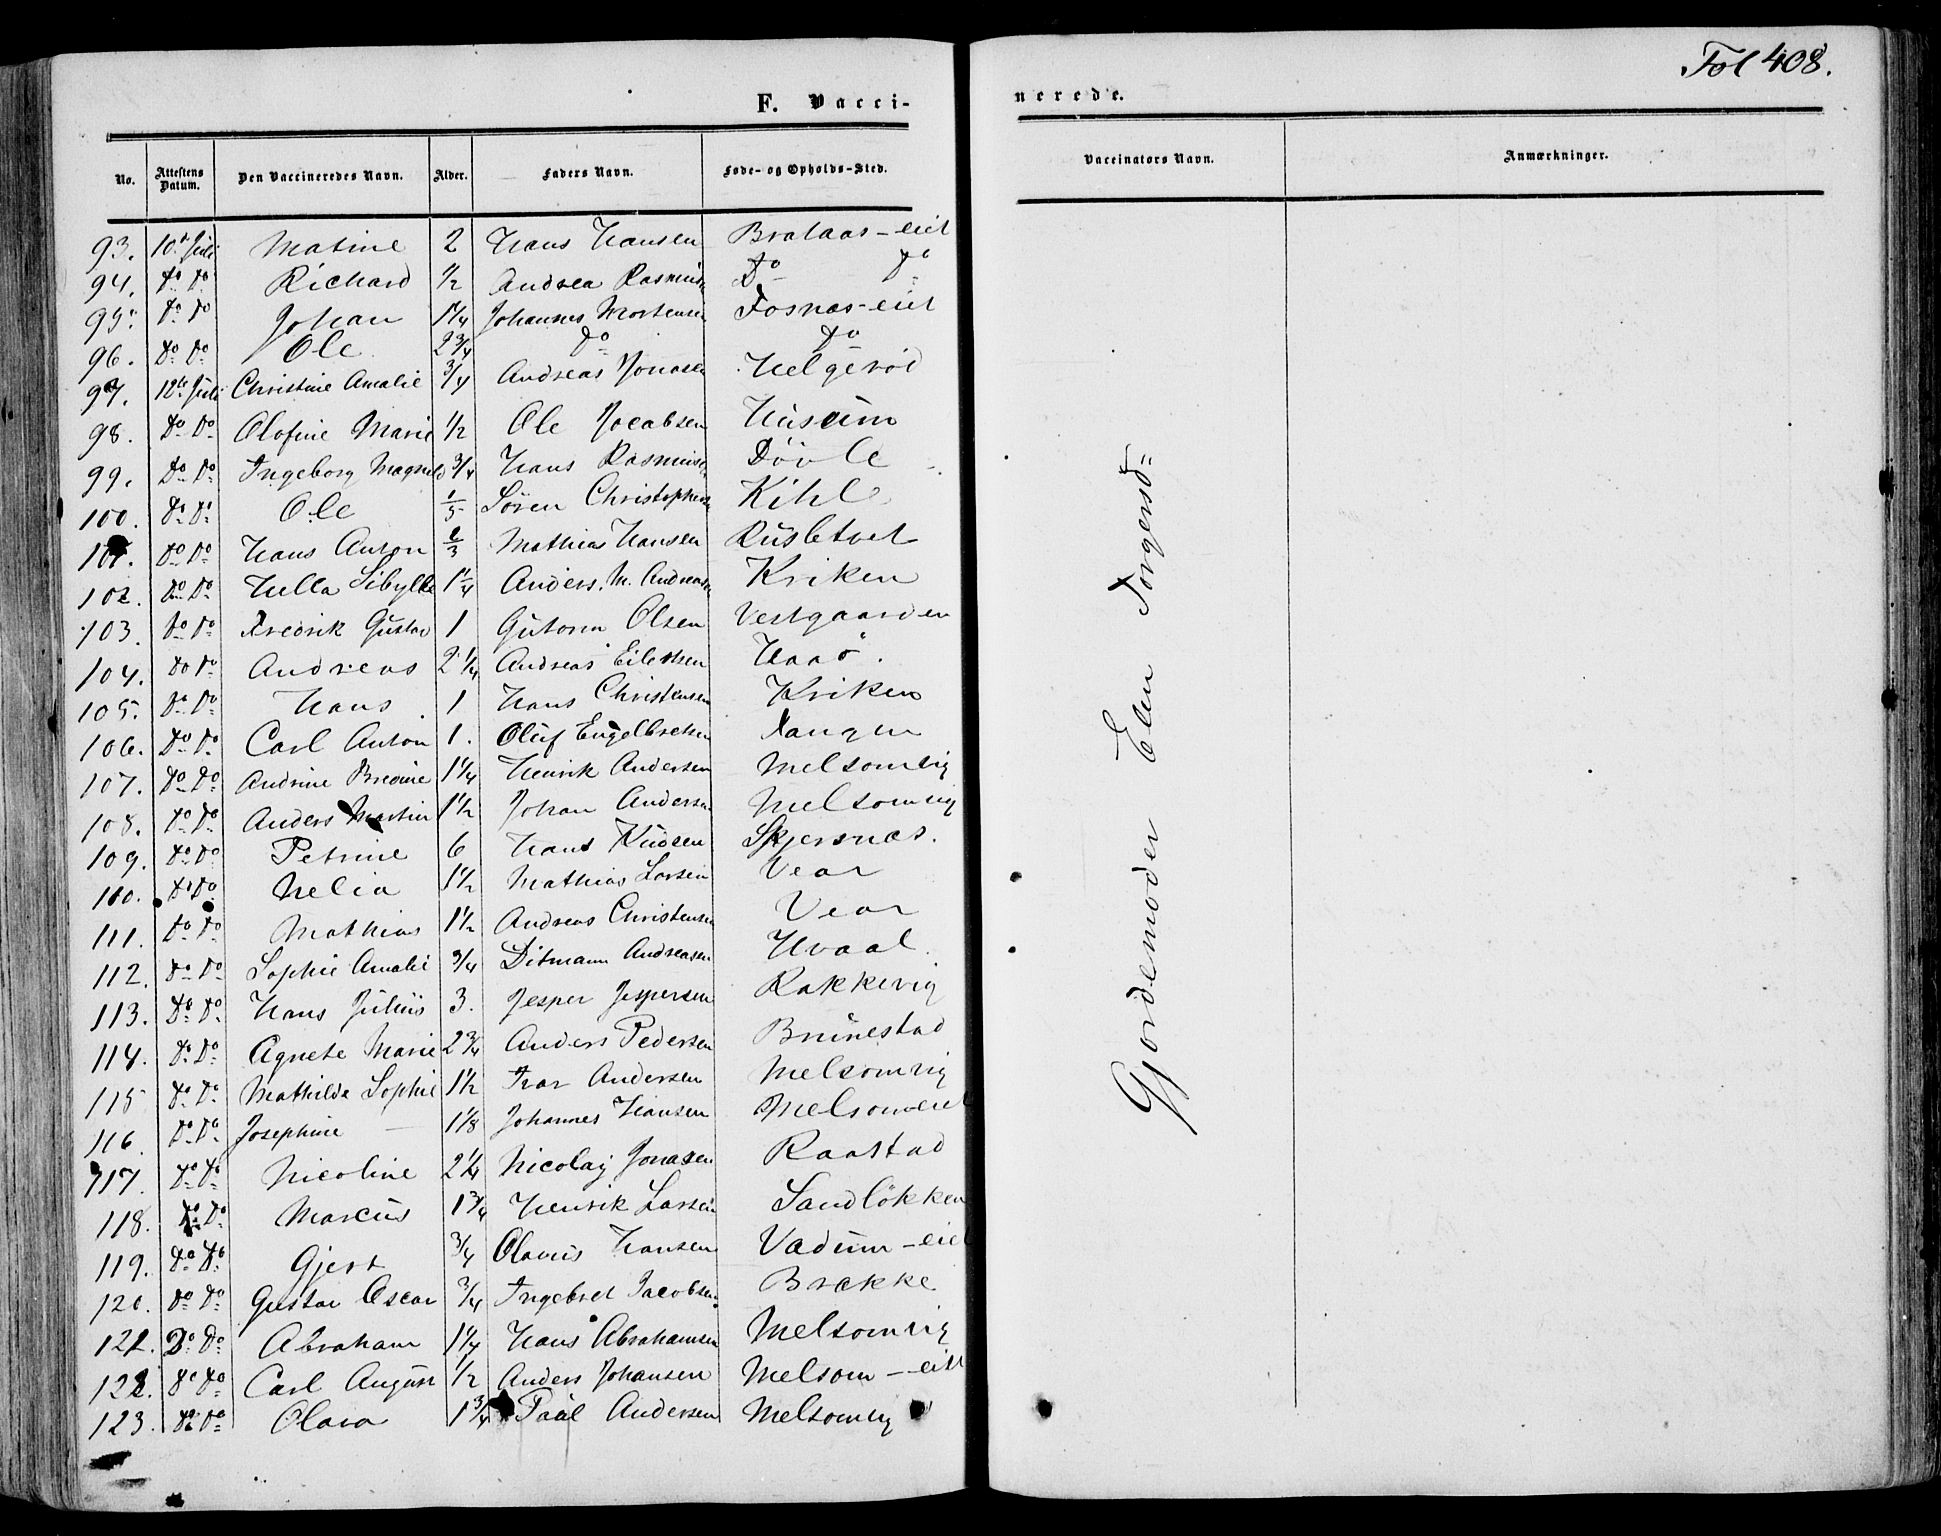 Fol 408.
F. Vaccinerede.
No. Attestens Datum. Den Vaccineredes Navn. Alder. Faders Navn. Føde- og Opholds-Sted. Vaccinators Navn. Anmærkninger.
93. 10de Juli Matine 2 Hans Hansen Brataas-eiet
94. Do Do Richard 1/2 Andrea Rasmus Do Do
95. Do Do Johan 1 1/4 Johannes Mortensen Fosnas-eiet
96. Do Do Ole 2 3/4 Do Do
97. 12te Juli Christine Amalie 3/4 Andreas Jonasen Helgerød
98. Do Do Olofine Marie 1/2 Ole Jocabsen Husum
99. Do Do Ingeborg Magnild 3/4 Hans Rasmus Dövle
100. Do Do Ole 1/5 Sören Christophers Kihl
101. Do Do Hans Anton 2/3 Mathias Hansen Rusletvet
102. Do Do Hella Sibylle 1 1/4 Anders. M. Andreasen Kriken
103. Do Do Fredrik Gustav 1 Gutorm Olsen Vestgaarden
104. Do Do Andreas 2 1/4 Andreas Eilertsen Haaö.
105. Do Do Hans 1 Hans Christensen Kriken
106. Do Do Carl Anton 1. Oluf Engelbretsen Tangen
107. Do Do Andrine Bredine 1 1/4 Henrik Andersen Melsomvig
108. Do Do Anders Martin 1 1/2 Johan Andersen Melsomvig
109. Do Do Petrine 6 Hans Knudsen Skjersnæs.
110. Do Do Nelia 1 1/2 Mathias Larsen Vear
111. Do Do Mathias 1 1/2 Andreas Christensen Vear
112. Do Do Sophie Amalie 3/4 Ditmann Andreasen Hvaal
113. Do Do Hans Julius 3. Jesper Jespersen Rakkevig
114. Do Do Agnete Marie 2 3/4 Anders Pedersen Brunestad
115 Do Do Mathilde Sophie 1 1/2 Ivar Andersen Melsomvig
116. Do Do Josephine 1 1/8 Johannes Hansen Melsomeiet
117. Do Do Nicoline 2 1/4 Nicolaj Jonasen Raastad
118. Do Do Marcus 1 3/4 Henrik Larsen Sandlökken
119. Do Do Gjert 3/4 Olavus Hansen Vadum-eiet
120. Do Do Gustav Oscar 3/4 Ingebret Jacobsen Brække
121. Do Do Abraham 1 1/4 Hans Abrahamsen Melsomvig
122. Do Do Carl August 1/2 Anders Johansen Melsom-eiet
123. Do Do Olava 1 3/4 Paul Andersen Melsomvig
Gjordemoder Elen Torgersd=